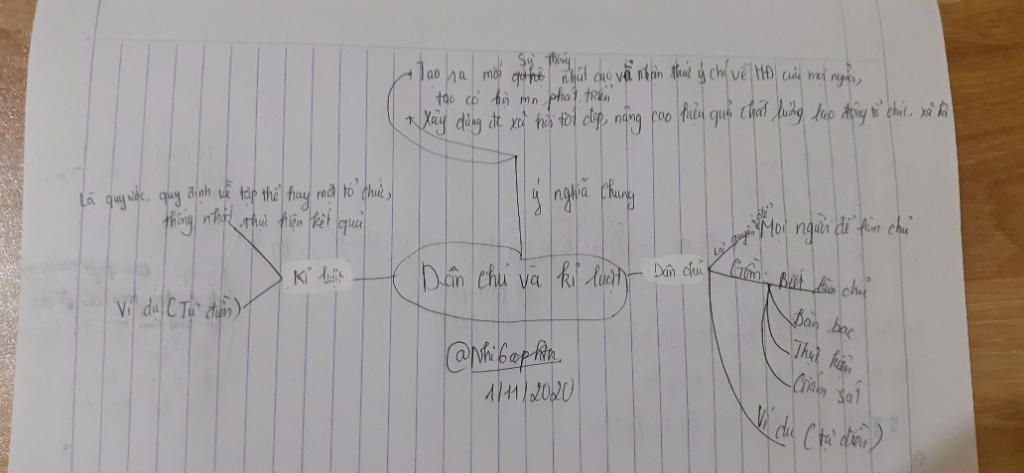 + Tạo ra mối sự thống nhất cao về nhận thức ý chí về HĐ của mọi người,
tạo cơ hội mn phát triển
+ Xây dựng đc xã hội tốt đẹp, nâng cao hiệu quả chất lượng lao động tổ chức, xã hội
ý nghĩa chung
Là quy ước, quy định về tập thể hay một tổ chức,
thống nhất, thực hiện kết quả
Kỉ luật
Ví dụ (Tự điền)
Dân chủ và kỉ luật
Dân chủ
Là quyền để Mọi người để làm chủ
Gồm: Biết làm chủ
Bàn bạc
Thực hiện
Giám sát
Ví dụ (tự điền)
1/11/2020